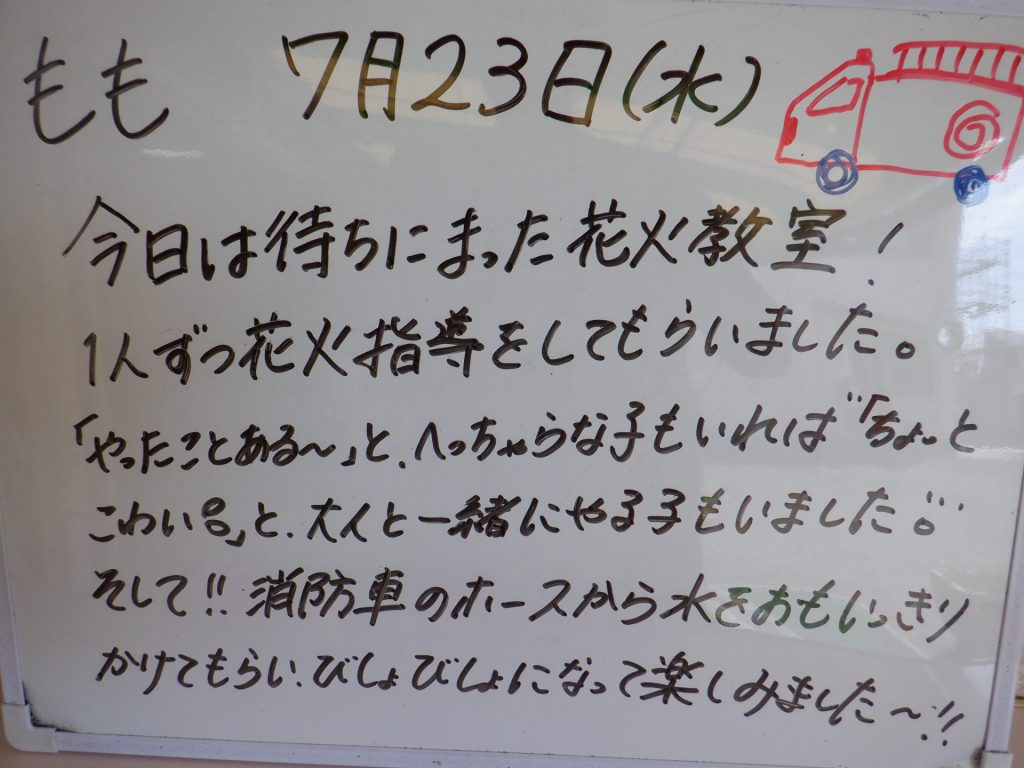 もも 7月23日(水)
今日は待ちにまった花火教室!
1人ずつ花火指導をしてもらいました。
「やったことある〜」と、へっちゃらな子もいれば"「ちょっと
こわい。。」と、大人と一緒にやる子もいました。
そして!!消防車のホースから水をおもいっきり
かけてもらい、びしょびしょになって楽しみました〜!!